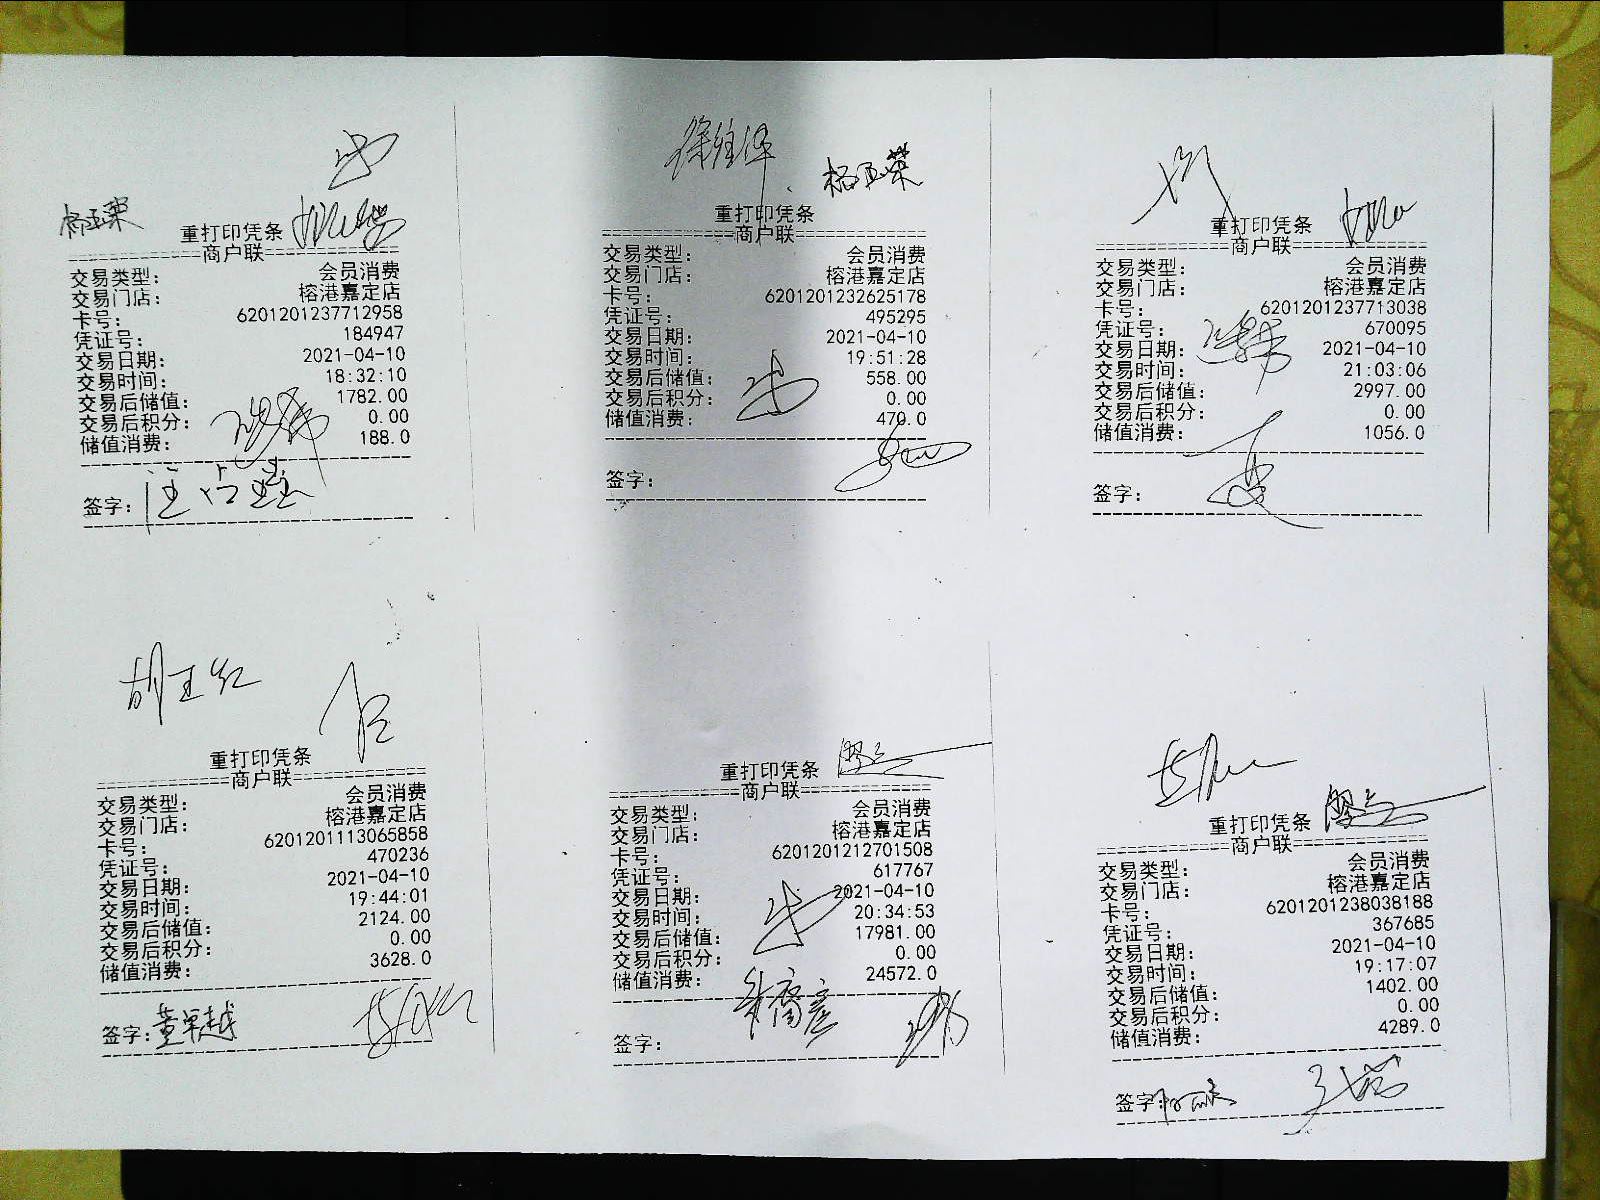 杨亚荣
重打印凭条
商户联
交易类型: 会员消费
交易门店: 榕港嘉定店
卡号: 6201201237712958
凭证号: 184947
交易日期: 2021-04-10
交易时间: 18:32:10
交易后储值: 1782.00
交易后积分: 0.00
储值消费: 188.0
签字:
杨亚荣
重打印凭条
商户联
交易类型: 会员消费
交易门店: 榕港嘉定店
卡号: 6201201232625178
凭证号: 495295
交易日期: 2021-04-10
交易时间: 19:51:28
交易后储值: 558.00
交易后积分: 0.00
储值消费: 470.0
签字:
重打印凭条
商户联
交易类型: 会员消费
交易门店: 榕港嘉定店
卡号: 6201201237713038
凭证号: 670095
交易日期: 2021-04-10
交易时间: 21:03:06
交易后储值: 2997.00
交易后积分: 0.00
储值消费: 1056.0
签字:
胡玉红
重打印凭条
商户联
交易类型: 会员消费
交易门店: 榕港嘉定店
卡号: 6201201113065858
凭证号: 470236
交易日期: 2021-04-10
交易时间: 19:44:01
交易后储值: 2124.00
交易后积分: 0.00
储值消费: 3628.0
签字:
重打印凭条
商户联
交易类型: 会员消费
交易门店: 榕港嘉定店
卡号: 6201201212701508
凭证号: 617767
交易日期: 2021-04-10
交易时间: 20:34:53
交易后储值: 17981.00
交易后积分: 0.00
储值消费: 24572.0
签字:
重打印凭条
商户联
交易类型: 会员消费
交易门店: 榕港嘉定店
卡号: 6201201238038188
凭证号: 367685
交易日期: 2021-04-10
交易时间: 19:17:07
交易后储值: 1402.00
交易后积分: 0.00
储值消费: 4289.0
签字: